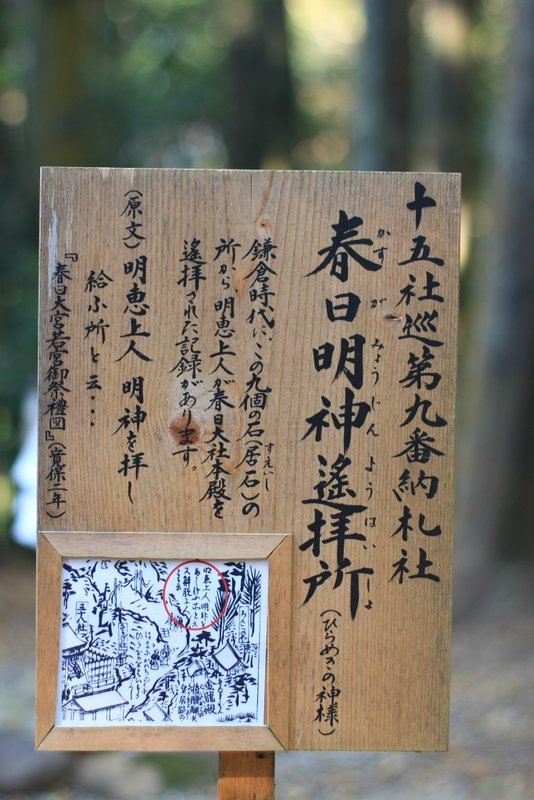 十五社巡第九番納札社
春日明神遙拝所(ひらめきの神様)
かすがみょうじんようはいしょ
鎌倉時代にこの九個の石(居石)の
すえいし
所から明恵上人が春日大社本殿を
遙拝された記録があります。
(原文)明恵上人 明神を拝し
給ふ所と云・・
『春日大宮若宮御祭禮図』(寛保二年)